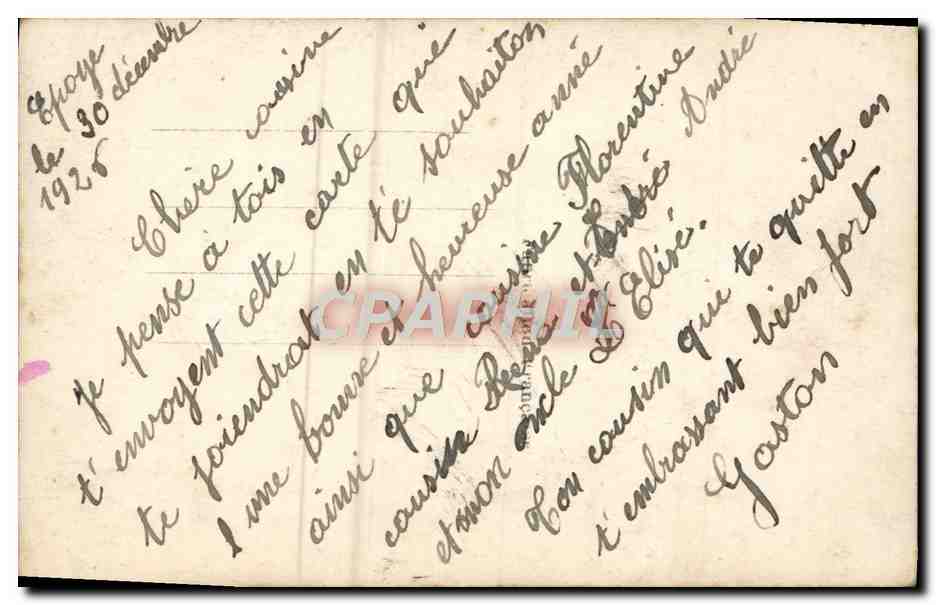 Epoye
le 30 décembre
1926
Chère cousine
je pense à tois en
t'envoyent cette carte que
te joiendrat en té souhaiton
une bonne et heureuse anné
ainsi que cousine Florentine
cousin René et André André
et mon oncle et Elisé.
Ton cousin qui te quitte en
t'embrassant bien fort
Gaston
CPAPHIL